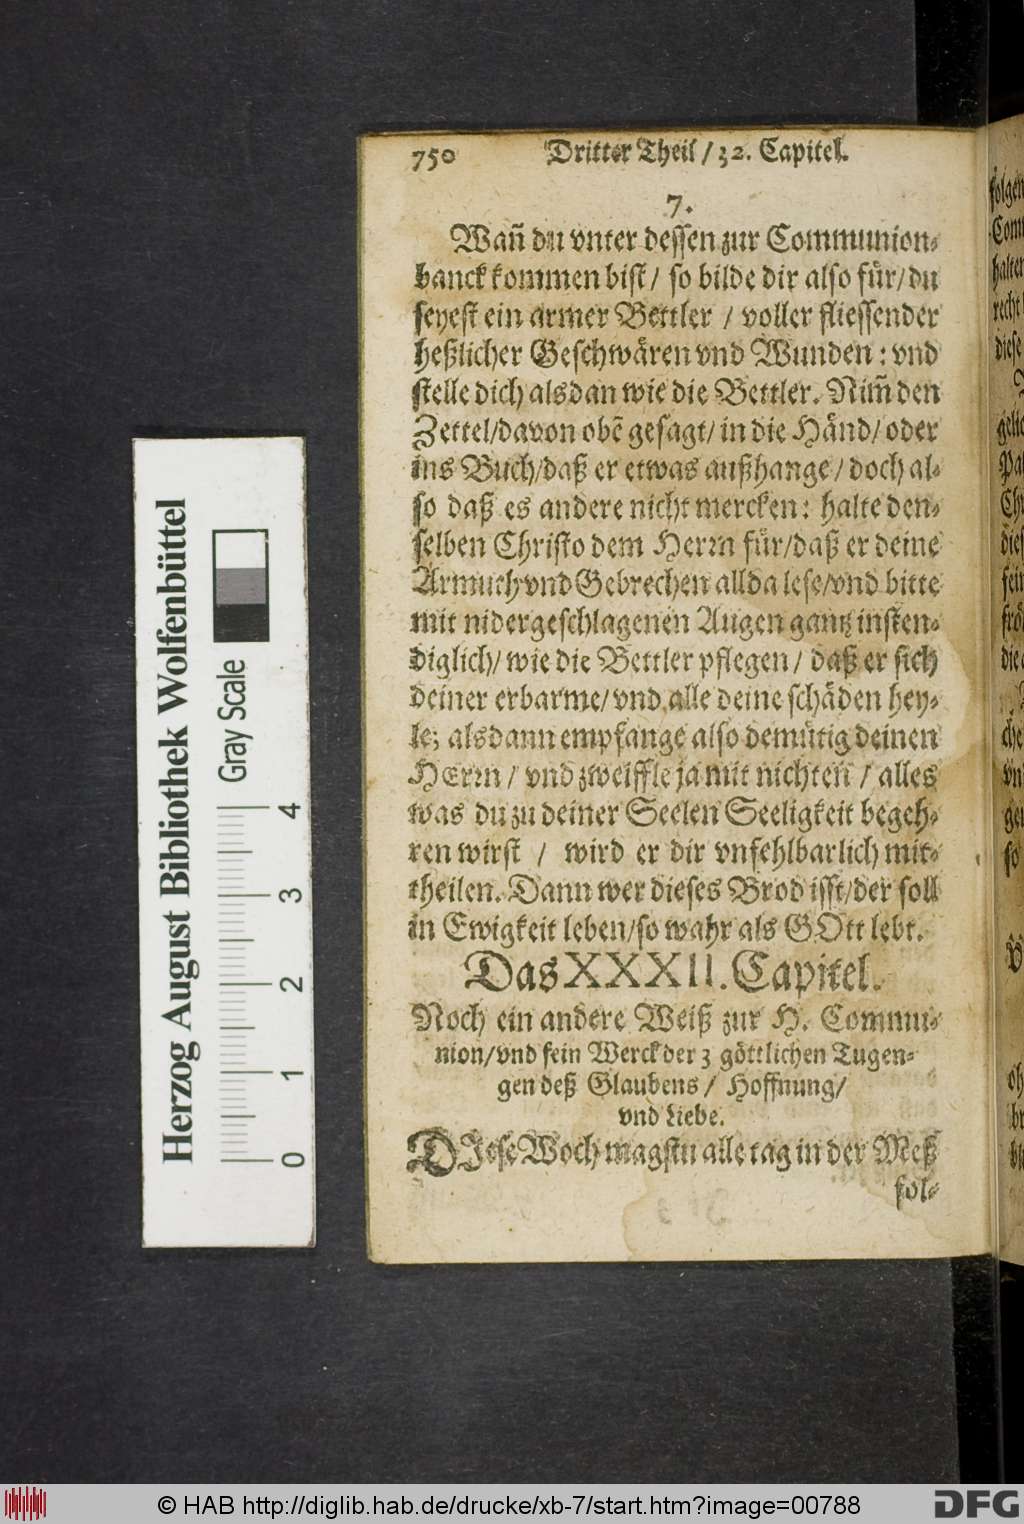 750 Dritter Theil / 32. Capitel.
7.
Wañ du vnter dessen zur Communion-
banck kommen bist / so bilde dir also für / du
seyest ein armer Bettler / voller fliessender
heßlicher Geschwären vnd Wunden : vnd
stelle dich alsdan wie die Bettler. Nim̃ den
Zettel/davon obẽ gesagt/ in die Händ/ oder
ins Buch/daß er etwas außhange / doch al-
so daß es andere nicht mercken: halte den-
selben Christo dem Herrn für/daß er deine
Armuth vnd Gebrechen allda lese/vnd bitte
mit nidergeschlagenen Augen gantz insten-
diglich/ wie die Bettler pflegen / daß er sich
deiner erbarme/ vnd alle deine schäden hey-
le; alsdann empfange also demütig deinen
HErrn / vnd zweiffle ja mit nichten / alles
was du zu deiner Seelen Seeligkeit begeh-
ren wirst / wird er dir vnfehlbarlich mit-
theilen. Dann wer dieses Brod isst/der soll
in Ewigkeit leben/so wahr als GOtt lebt.
Das XXXII. Capitel.
Noch ein andere Weiß zur H. Commu-
nion/vnd sein Werck der 3 göttlichen Tugen-
gen deß Glaubens / Hoffnung/
vnd Liebe.
DIese Woch magstu alle tag in der Meß
fol-
Herzog August Bibliothek Wolfenbüttel
Gray Scale
0 1 2 3 4
© HAB http://diglib.hab.de/drucke/xb-7/start.htm?image=00788
DFG